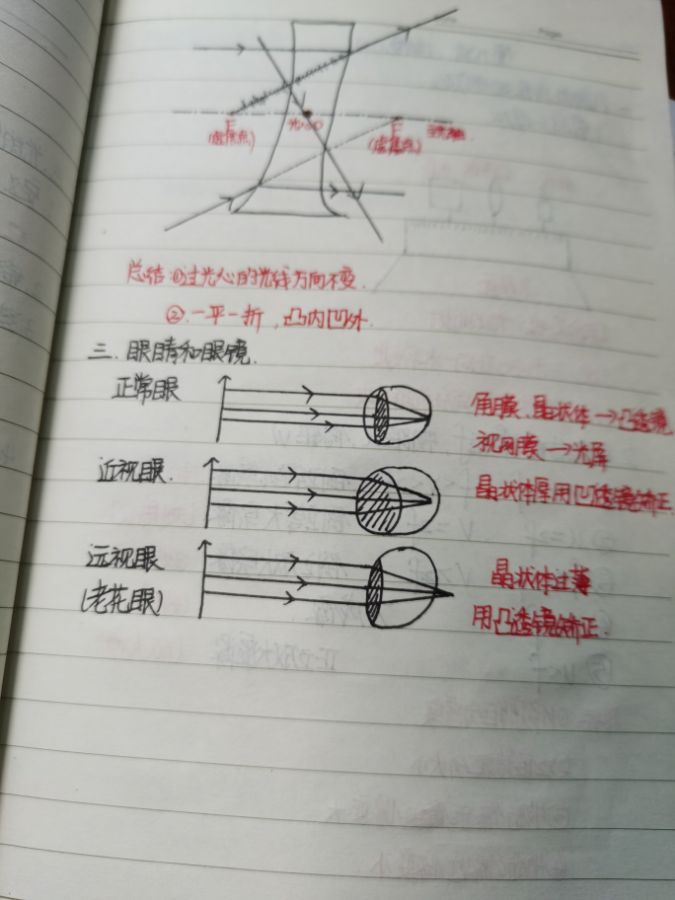 F 光心O F 主光轴
(虚焦点) (虚焦点)
总结:①过光心的光线方向不变.
②.一平一折,凸内凹外.
三.眼睛和眼镜.
正常眼
角膜、晶状体→凸透镜
视网膜→光屏
近视眼.
晶状体厚用凹透镜矫正.
远视眼
(老花眼)
晶状体过薄
用凸透镜矫正.